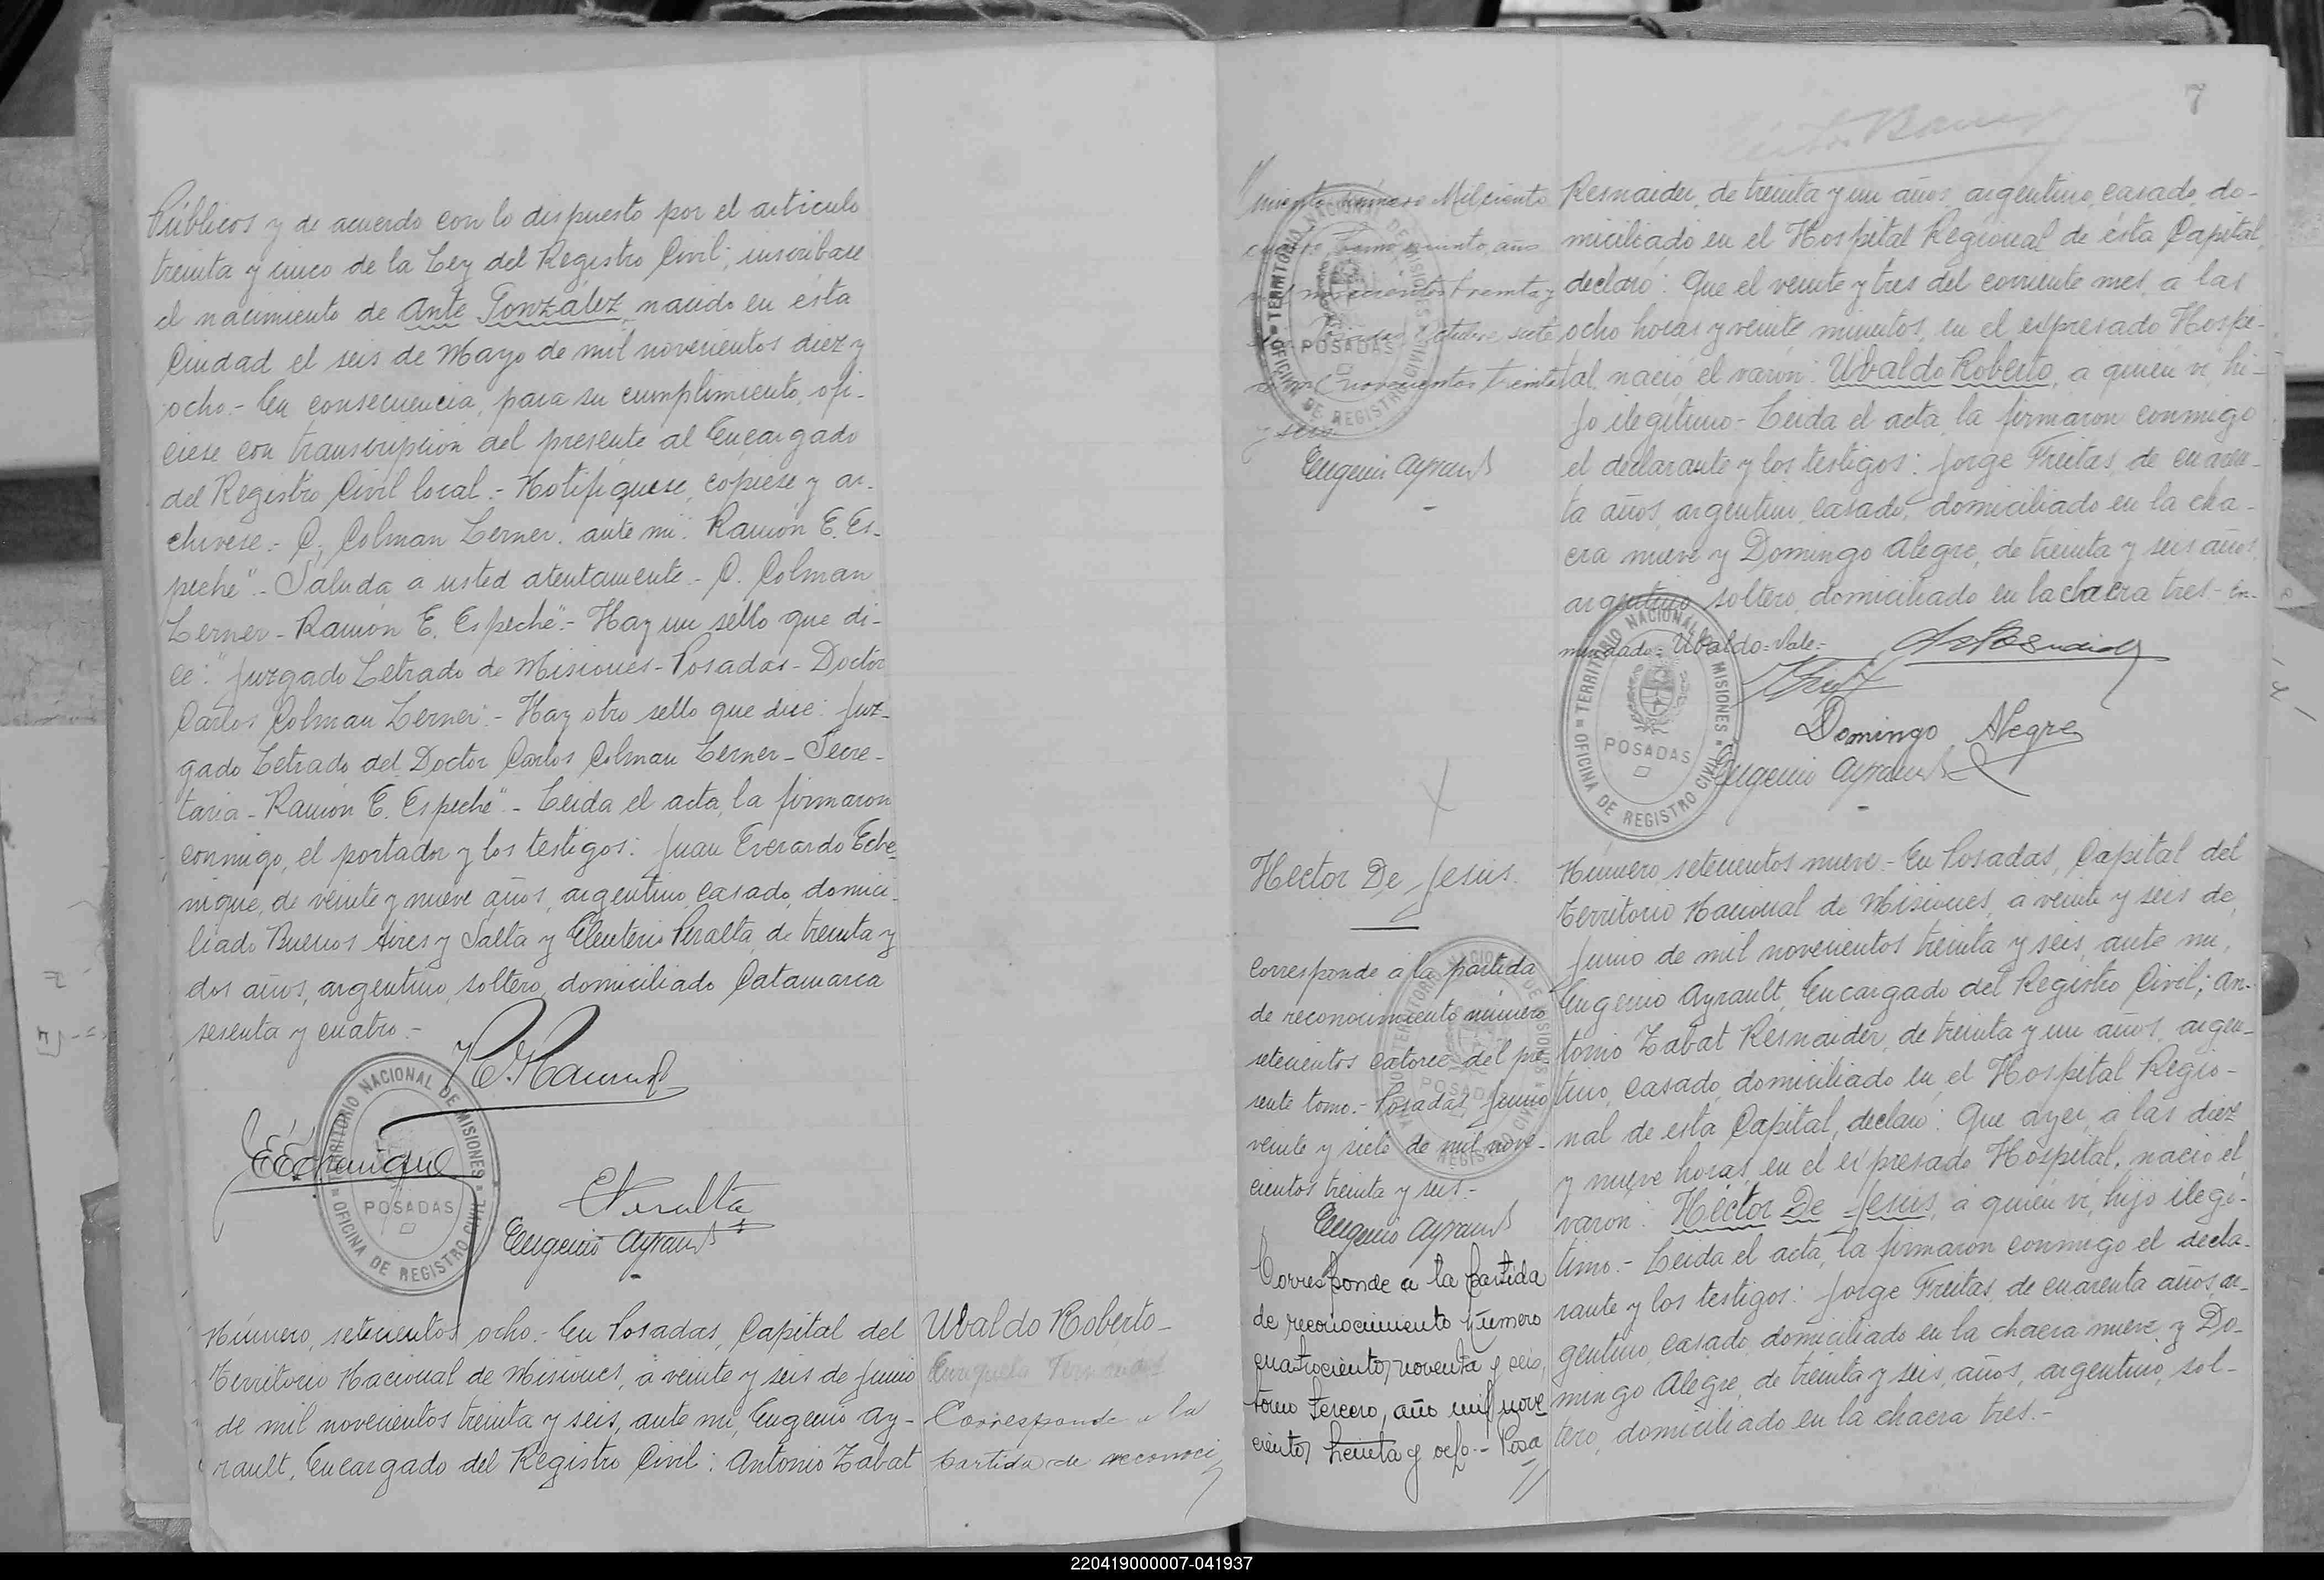 Públicos y de acuerdo con lo dispuesto por el artículo
treinta y cinco de la Ley del Registro Civil; inscríbase
el nacimiento de Ante González, nacido en esta
Ciudad el seis de Mayo de mil novecientos diez y
ocho.- En consecuencia, para su cumplimiento, ofi-
ciese con transcripción del presente al Encargado
del Registro Civil local.- Notifíquese, copiese y ar-
chivese.- C. Colman Lerner. ante mí: Ramón E. Es-
peche".- Saluda a usted atentamente.- C. Colman
Lerner - Ramón E. Espeche".- Hay un sello que di-
ce: "Juzgado Letrado de Misiones - Posadas - Doctor
Carlos Colman Lerner.- Hay otro sello que dice: Juz-
gado Letrado del Doctor Carlos Colman Lerner - Secre-
taria - Ramón E. Espeche".- Leida el acta, la firmaron
conmigo, el portador y los testigos: Juan Everardo Eche-
nique, de veinte y nueve años, argentino, casado, domici-
liado Buenos Aires y Salta y Eleuterio Peralta, de treinta y
dos años, argentino, soltero, domiciliado Catamarca
sesenta y cuatro.-
TERRITORIO NACIONAL DE MISIONES
POSADAS
OFICINA DE REGISTRO CIVIL
EPeralta
Eugenio Ayrault
Número, setecientos ocho.- En Posadas, Capital del
Territorio Nacional de Misiones, a veinte y seis de Junio
de mil novecientos treinta y seis, ante mí, Eugenio Ay-
rault, Encargado del Registro Civil: Antonio Zabat
Ubaldo Roberto-
Corresponde a la
partida de reconoci
7
miento número Mil ciento
cuatro Tomo quinto, año
mil novecientos treinta y
Octubre siete
de mil novecientos treinta
y seis.
Eugenio Ayrault
TERRITORIO NACIONAL DE MISIONES
POSADAS
OFICINA DE REGISTRO CIVIL
Resnaider, de treinta y un años, argentino, casado, do-
miciliado en el Hospital Regional de ésta Capital,
declaró: Que el veinte y tres del corriente mes, a las
ocho horas y veinte minutos, en el expresado Hospi-
tal, nació el varón: Ubaldo Roberto, a quien ví, hi-
jo ilegítimo - Leida el acta, la firmaron conmigo
el declarante y los testigos: Jorge Freitas, de cuaren-
ta años, argentino, casado, domiciliado en la cha-
cra nueve y Domingo Alegre, de treinta y seis años,
argentino, soltero, domiciliado en la chacra tres - En-
mendado: Ubaldo: Vale:
TERRITORIO NACIONAL DE MISIONES
POSADAS
OFICINA DE REGISTRO CIVIL
Domingo Alegre
Eugenio Ayrault
Hector De Jesús.
Corresponde a la partida
de reconocimiento número
setecientos catorce del pre-
sente tomo.- Posadas, Junio
veinte y siete de mil nove-
cientos treinta y seis.-
Eugenio Ayrault
Corresponde a la partida
de reconocimiento número
cuatrocientos noventa y seis,
tomo tercero, año mil nove
cientos treinta y ocho.- Posa
TERRITORIO NACIONAL DE MISIONES
POSADAS
OFICINA DE REGISTRO CIVIL
Número, setecientos nueve.- En Posadas, Capital del
Territorio Nacional de Misiones, a veinte y seis de
Junio de mil novecientos treinta y seis, ante mí,
Eugenio Ayrault, Encargado del Registro Civil; An-
tonio Zabat Resnaider, de treinta y un años, argen-
tino, casado, domiciliado en el Hospital Regio-
nal de esta Capital, declaró: Que ayer, a las diez
y nueve horas, en el expresado Hospital, nació el
varon: Héctor De Jesús, a quien ví, hijo ilegí-
timo.- Leida el acta, la firmaron conmigo el decla-
rante y los testigos: Jorge Freitas, de cuarenta años, ar-
gentino, casado, domiciliado en la chacra nueve y Do-
mingo Alegre, de treinta y seis, años, argentino, sol-
tero, domiciliado en la chacra tres.-
220419000007-041937